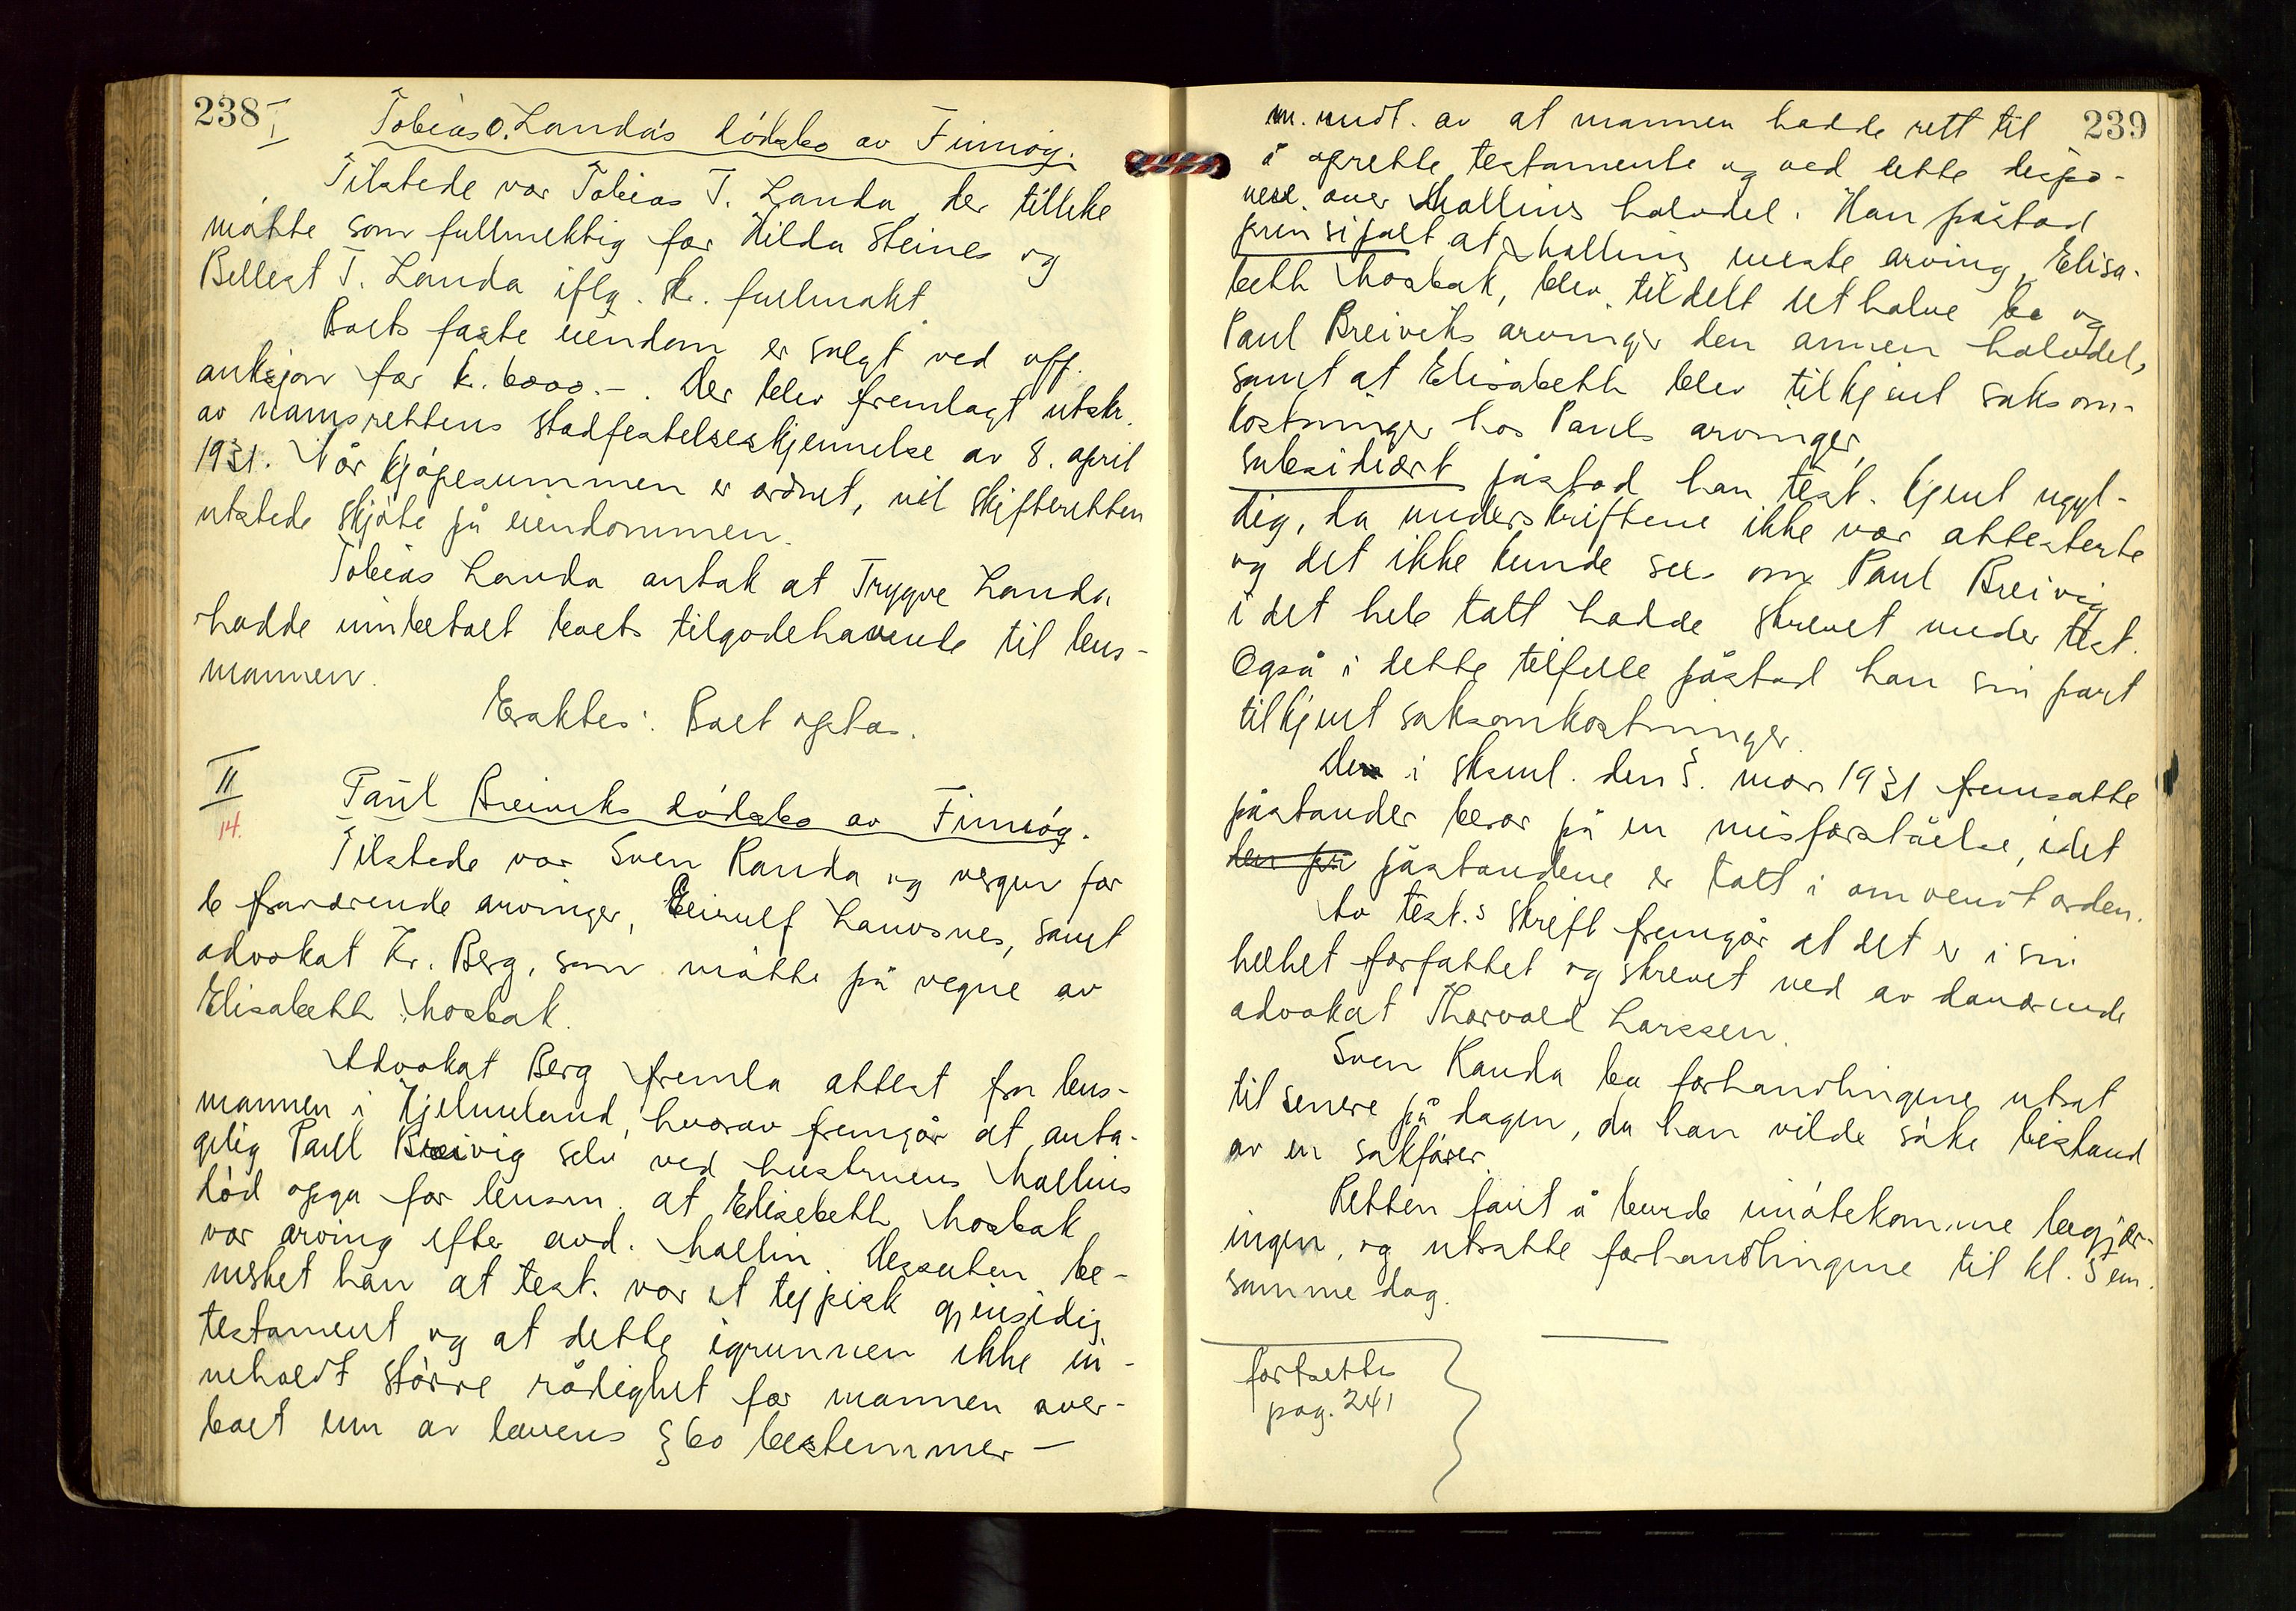 238
I
Tobias O. Landa's dødsbo av Finnøy.
Tilstede var Tobias T. Landa, der tillike
møtte som fullmektig for Hilda Steines og
Bellest T. Landa iflg. skr. fullmakt.
Boets faste eiendom er solgt ved off.
auksjon for k. 6000.-. Der blev fremlagt utskr.
av namsrettens stadfestelseskjennelse av 8. april
1931. Når kjøpesummen er ordnet, vil skifteretten
utstede skjøte på eiendommen.
Tobias Landa antok at Trygve Landa
hadde innbetalt boets tilgodehavende til lens-
mannen.
Eraktes: Boet optas.
II
14.
Paul Breiviks dødsbo av Finnøy.
Tilstede var Sven Randa og vergen for
de fraværende arvinger, Eiulf Lauvsnes, samt
advokat Kr. Berg, som møtte på vegne av
Elisabeth Mosbak.
Advokat Berg fremla attest fra lens-
mannen i Hjelmeland, hvorav fremgår at anta-
gelig Paul Breivig selv ved hustruens Mallins
død opga for lensm. at Elisebeth Mosbak
var arving efter avd. Mallin. Dessuten be-
merket han at test. var et typisk gjensidig
testament og at dette igrunnen ikke in-
neholdt større rådighet for mannen over
boet enn av lovens § 60 bestemmer —
239
m. undt. av at mannen hadde rett til
å oprette testamente og ved dette dispo-
nere over Mallins halvdel. Han påstod
prinsipalt at Mallins næste arving, Elisa-
beth Mosbak, blev tildelt det halve bo og
Paul Breiviks arvinger den annen halvdel,
samt at Elisabeth blev tilkjent saksom-
kostninger hos Pauls arvinger.
Subsidiært påstod han test. kjent ugyl-
dig, da underskriftene ikke var attesterte
og det ikke kunde sees om Paul Breivig
i det hele tatt hadde skrevet under test.
Også i dette tilfelle påstod han sin part
tilkjent saksomkostninger.
De i skaml. den 5. mars 1931 fremsatte
påstander beror på en misforståelse, idet
den på påstandene er tatt i omvendt orden.
Av test.s skrift fremgår at det er i sin
helhet forfattet og skrevet ned av daværende
advokat Thorvald Larssen.
Sven Randa ba forhandlingene utsat
til senere på dagen, da han vilde søke bistand
av en sakfører.
Retten fant å burde imøtekomme begjær-
ingen, og utsatte forhandlingene til kl. 5 em.
samme dag.
fortsettes
pag. 241